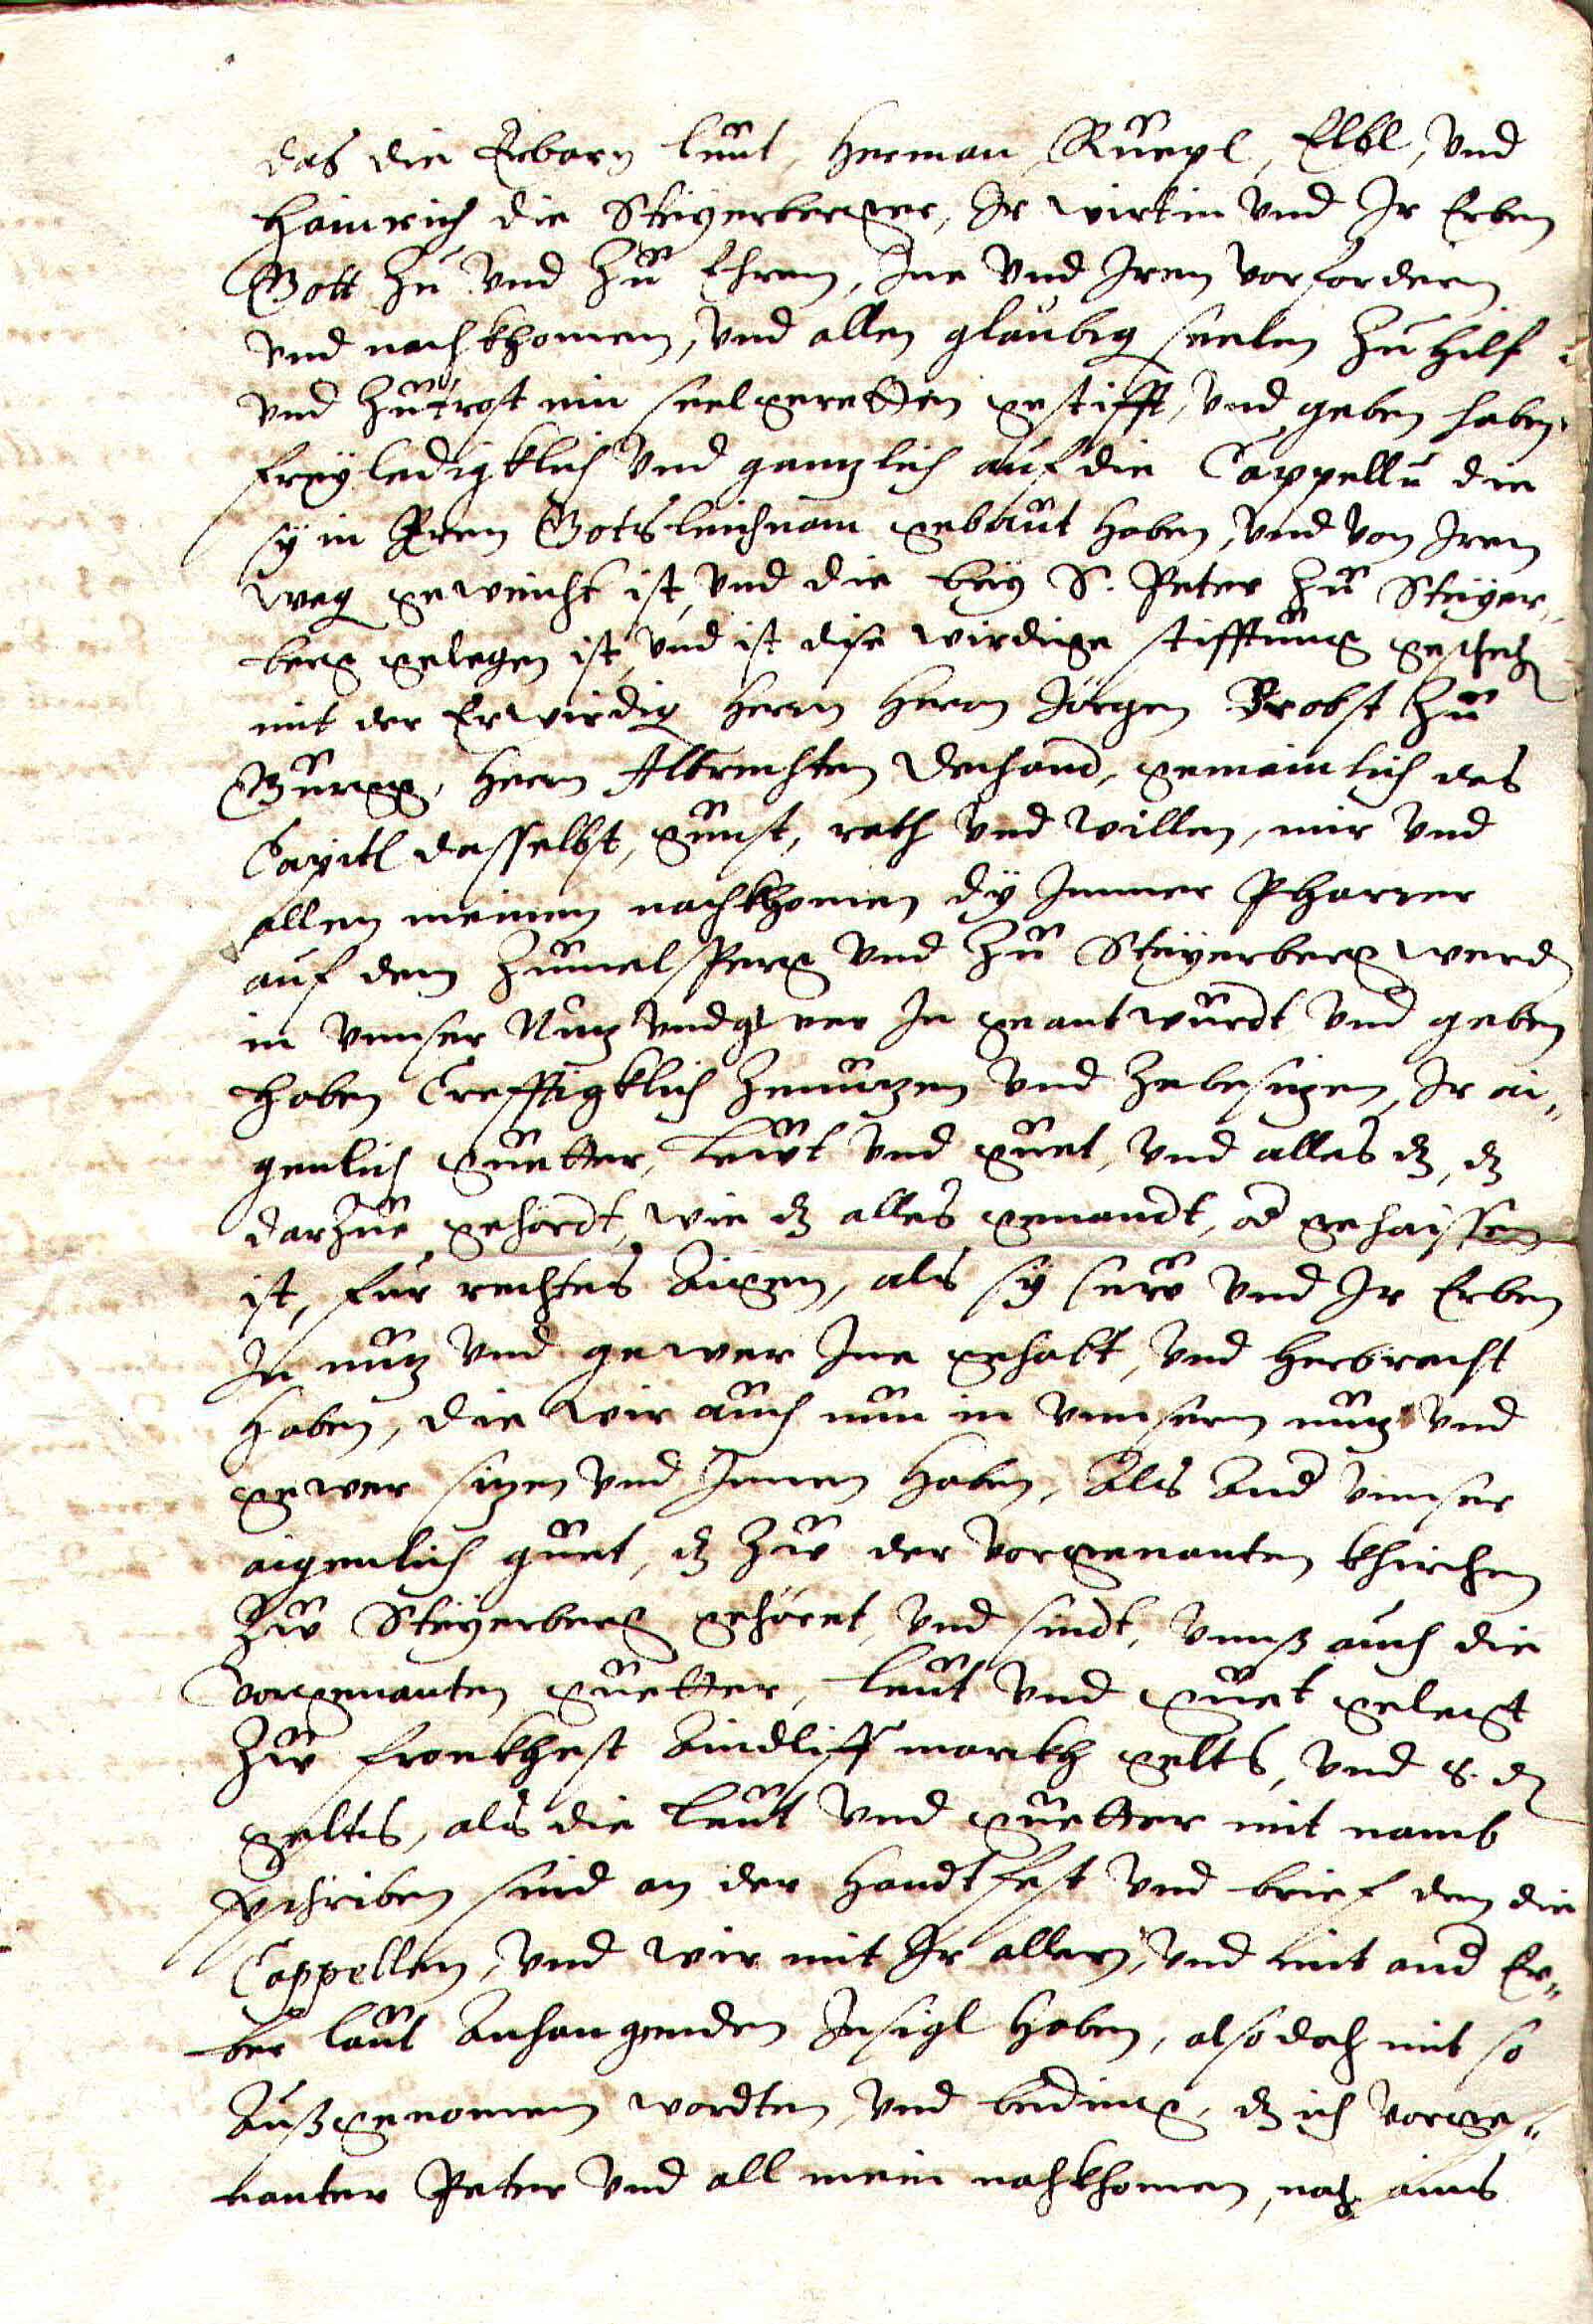 das die Erbarn leüt, Herman Rüepl, Elbl, vnd
Hainrich die Steÿerberger, Ir wirtin vnd Ir Erben
Gott zu vnd zu Ehren, Ine vnd Iren vorfordern
vnd nachkhomen, vnd allen glaubig seelen zu hilf
vnd zu trost ein seelgeretten gestifft, vnd geben haben
freÿ ledigklich vnd gantzlich auf die Cappelln die
sÿ in Eren Gotsleichnam gebaut haben, vnd von Irem
weg geweicht ist, vnd die beÿ S. Peter zu Steÿer„
berg gelegen ist, vnd ist dise wirdige stifftung geschehen
mit der Erwirdig herrn herrn Jörgen Brobst zu
Gurgg, herrn Albrechten dechand, gemainlich des
Capitl desselbst, gunst, rath vnd willen, mir vnd
allen meinen nachkhomen dÿ Immer Pharrer
auf dem Zumelsperg vnd zu Steÿerberg werd
in vnnser Nutz vnd gwer In geantwurdt vnd geben
haben Creffigklich zenutzen vnd zebesitzen, Ir ai„
genlich guetter, leut vnd guet, vnd alles dz, dz
darzue gehördt, wie dz alles genandt, od gehaissen
ist, für rechtes aigen, als sÿ seü vnd Ir Erben
In nutz vnd gewer Ine gehabt, vnd herbracht
haben, die wir auch nun in vnnsern nutz vnd
gewer sitzen vnd Innen haben, als and vnnser
aigenlich guet, dz zu der vorgenanten khirchen
zu Steÿerberg gehöret, vnd sindt, vnnß auch die
vorgenanten guetter, leut vnd guet gelegt
zu aindliff markh gelts, vnd 8. d
gelts, als die leut vnd guetter mit namb
sind an der handtfest vnd brief dem die
Cappellen, vnd wir mit Ir allen, vnd mit and Er„
ber laut anhangenden Insigl haben, also doch mit so
außgenomen wordten, vnd beding, dz ich vorge„
nanter Peter vnd all mein nachkhomen, nach ains